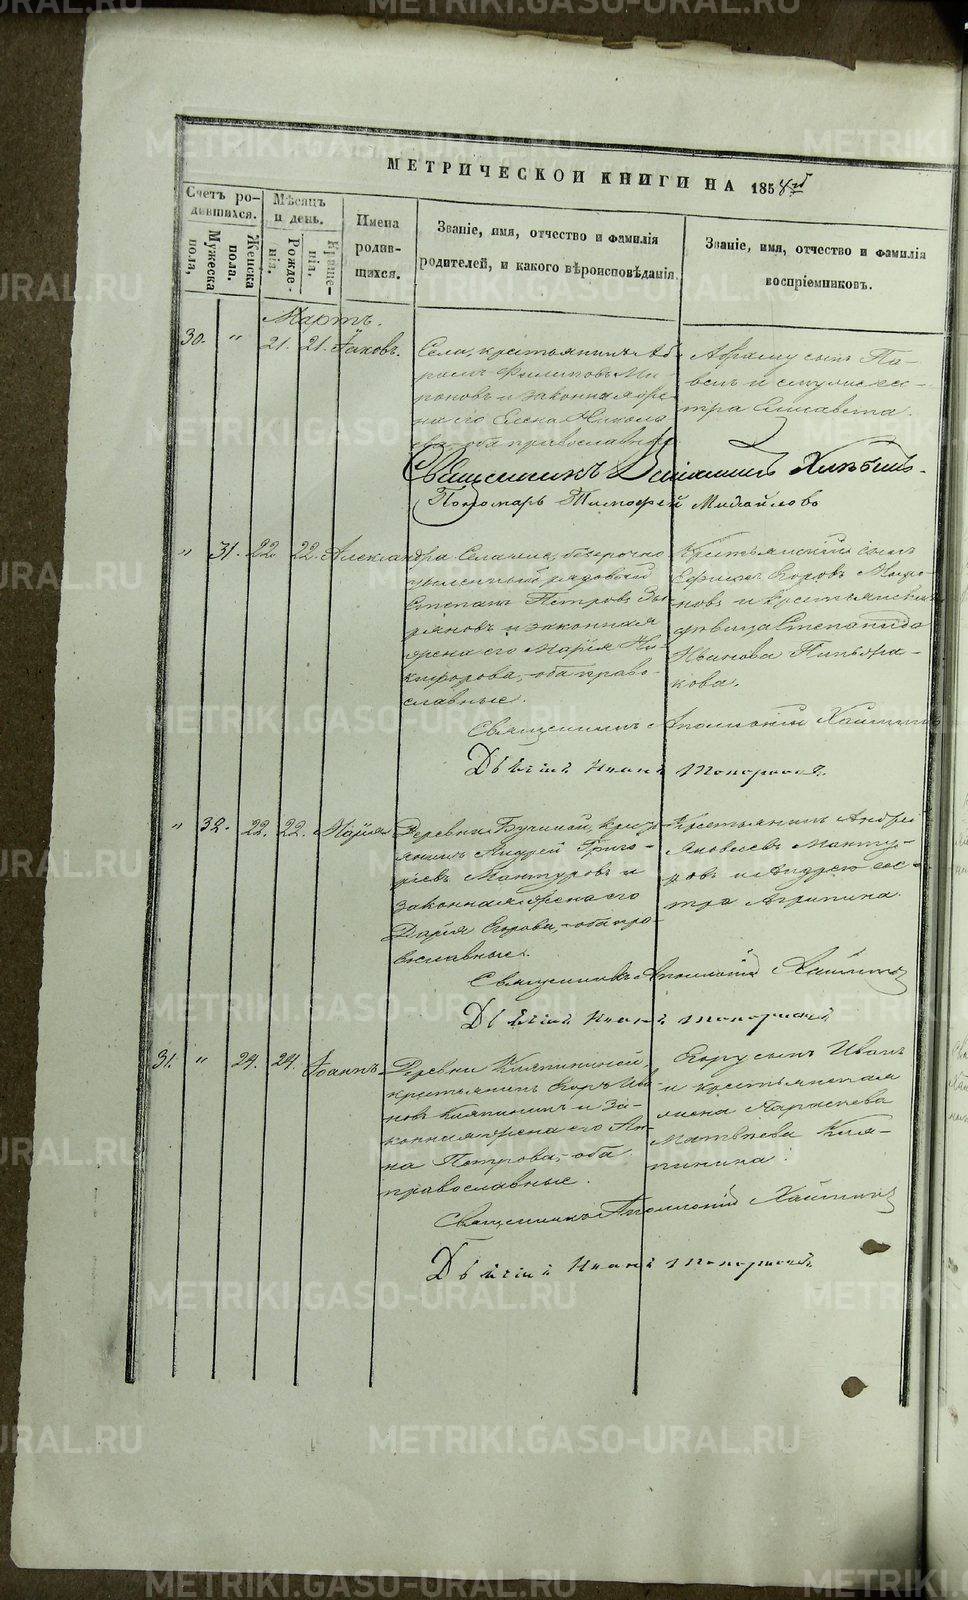 МЕТРИЧЕСКОЙ КНИГИ НА 1858й
Счетъ ро-
дившихся.
Мужеска
пола,
Женска
пола.
Мѣсяцъ
и день.
Рожде-
нія.
Креще-
нія.
Имена
родив-
шихся.
Званіе, имя, отчество и фамилія
родителей, и какого вѣроисповѣданія
Званіе, имя, отчество и фамилія
воспріемниковъ.
Мартъ.
30. " 21. 21. Іаковъ.
Села, крестьянинъ Аб-
рамъ Филиповъ Ми-
роновъ и законная же-
на его Елена Никола
ева оба православные
Абраму сынъ Па-
велъ и
сестра Елисавета.
Священникъ
Пономарь Тимофей Михайловъ
" 31. 22. 22. Александра
Селанье, безсрочно
рядовой
Степанъ Петровъ Зы-
ряновъ и законная
жена его Марія Ни-
кифорова, оба право-
славные.
Крестьянскій сынъ
Ефимъ Егоровъ Миро-
новъ и крестьянская
дѣвица Степанида
Иванова
кова.
Священникъ Аполлоній
Дьячій Иванъ
" 32. 22. 22. Марія
Деревни Бучиной, крест-
янинъ Андрей Григо-
рьевъ Мантуровъ и
законная жена его
Дарья Егорова, оба пра-
вославные.
Крестьянинъ Андрей
Яковлевъ Манту-
ровъ и Андрею сес-
тра Агрипина
Священникъ Аполлоній
Дьячій Иванъ
31. " 24. 24. Іоаннъ.
Деревни Кляпининой,
крестьянинъ Егоръ Ива-
новъ Кляпининъ и за-
конная жена его Ан-
на Петрова, оба
православные.
Егору сынъ Иванъ
и крестьянская
жена
Матвѣева Кля-
пинина.
Священникъ Аполлоній
Дьячій Иванъ
METRIKI.GASO-URAL.RU